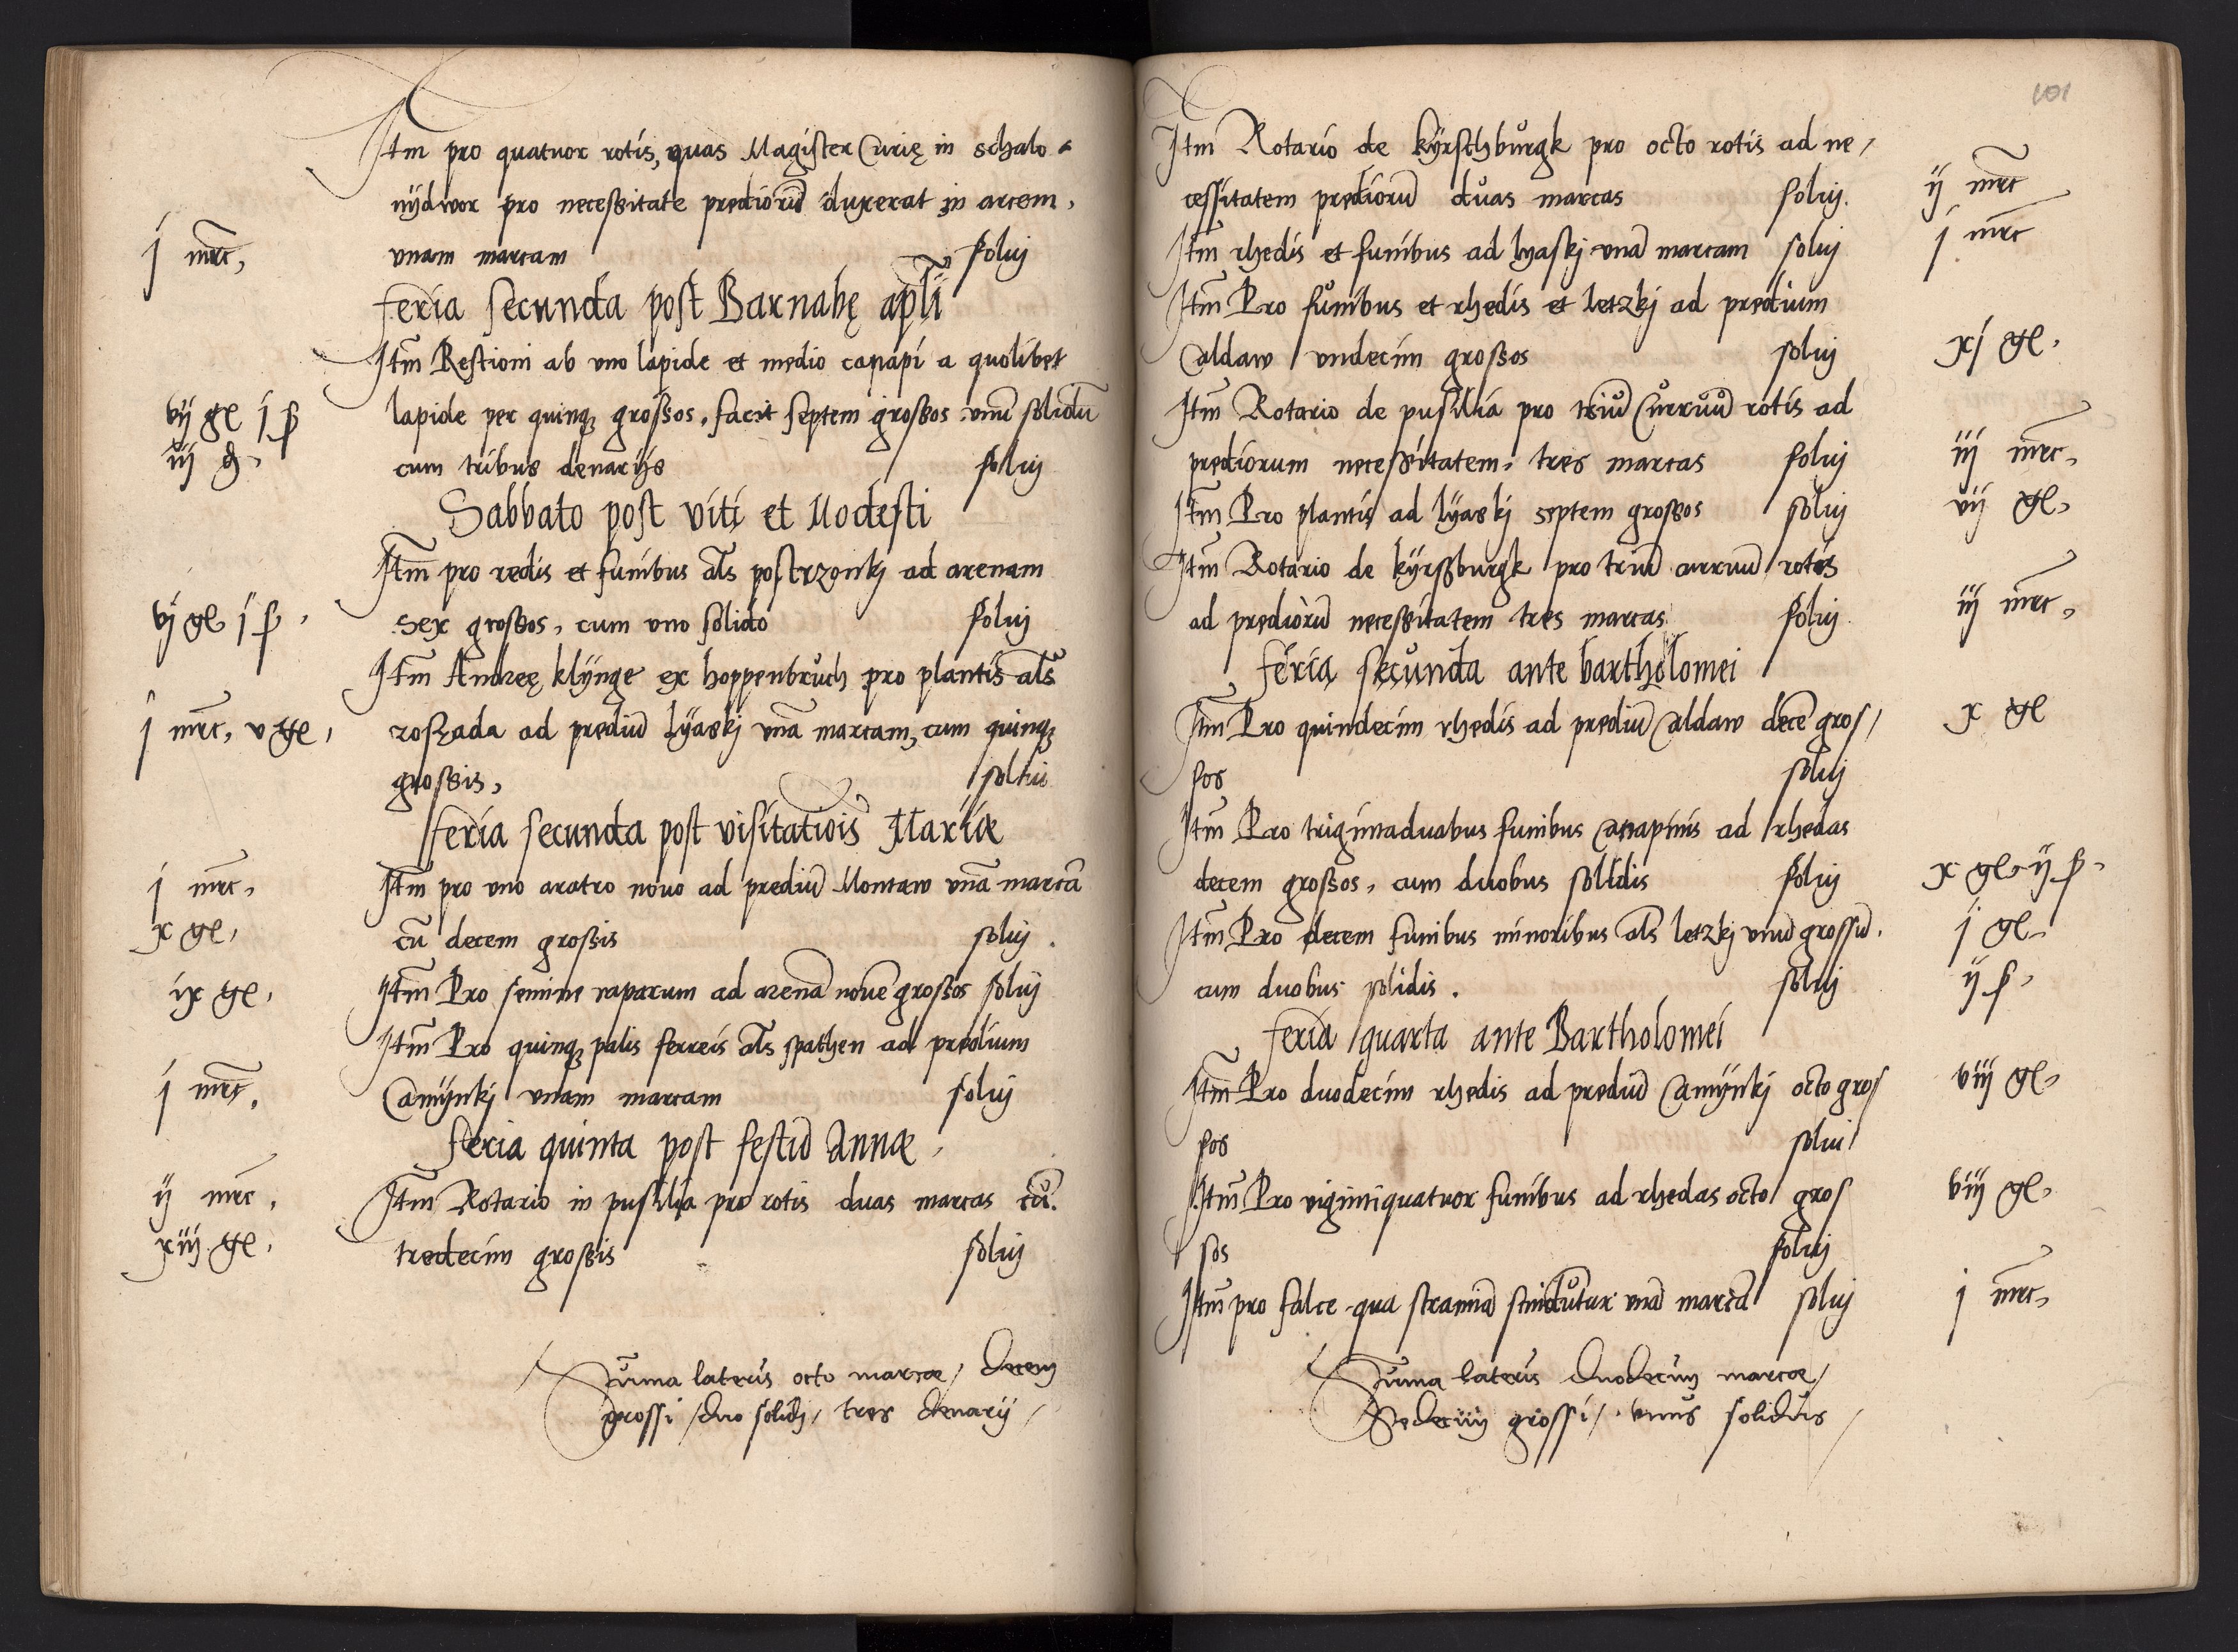 Itm pro quatuor rotis, quas Magister Curię in schalo-
nydwor pro necessitate predioru duxerat in arcem,
j mrc, unam marcam soluj
feria secunda post Barnabę apli
Itm Restioni ab uno lapide et medio canapi a quolibet
vij gl j s lapide per quinq grossos, facit septem grossos unu solidu
iij d. cum tribus denarijs soluj
Sabbato post viti et Modesti
Itm pro redis et funibus als postrzonkj ad arenam
vj gl j s, sex grossos, cum uno solido soluj
Itm Andreę klynge ex hoppenbruch pro plantis als
j mrc, v gl, roszada ad prediu Lyaskj una marcam, cum quinq
grossis, solui
feria secunda post visitatiois Mariæ
j mrc, Itm pro uno aratro novo ad prediu Montaw una marca
x gl, cu decem grossis soluj
ix gl, Itm Pro semine raparum ad arena noue grossos soluj
Itm Pro quinq palis ferreis als spathen ad predium
j mrc, Camynkj unam marcam soluj
feria quinta post festu Annæ
ij mrc, Itm Rotario in pusilia pro rotis duas marcas cu
xiij gl, tredecim grossis soluj
Suma lateris octo marcæ / decem
grossi / duo solidj / tres denarij /
101
Itm Rotario de kyrschburgk pro octo rotis ad ne/
cessitatem predioru duas marcas soluj. ij mrc
Itm rhedis et funibus ad lyaskj una marcam soluj j mrc
Itm Pro funibus et rhedis et letzkj ad predium
Caldaw undecim grossos soluj xj gl,
Itm Rotario de pusilia pro triu Curruu rotis ad
prediorum necessitatem, tres marcas soluj iij mrc,
Itm Pro plantis ad lyaskj septem grossos soluj vij gl,
Itm Rotario de kyrssburgk pro triu curruu rotis
ad predioru necessitatem tres marcas soluj iij mrc,
feria secunda ante bartholomei
Itm Pro quindecim rhedis ad prediu Caldaw dece gros/ x gl
sos soluj
Itm Pro trigintaduabus funibus Canapinis ad rhedas
decem grossos, cum duobus solidis soluj x gl, ij s,
Itm Pro decem funibus minoribus als letzkj unu grossu. j gl,
cum duobus solidis. soluj ij s,
feria quarta ante Bartholomei
Itm Pro duodecim rhedis ad prediu Camynkj octo gros viij gl,
sos solui
Itm Pro vigintiquatuor funibus ad rhedas octo gros viij gl,
sos soluj
Itm pro falce qua stramina scindutur una marca soluj j mrc,
Suma lateris duodecim marcæ /
Sedecim grossi / unus solidus /